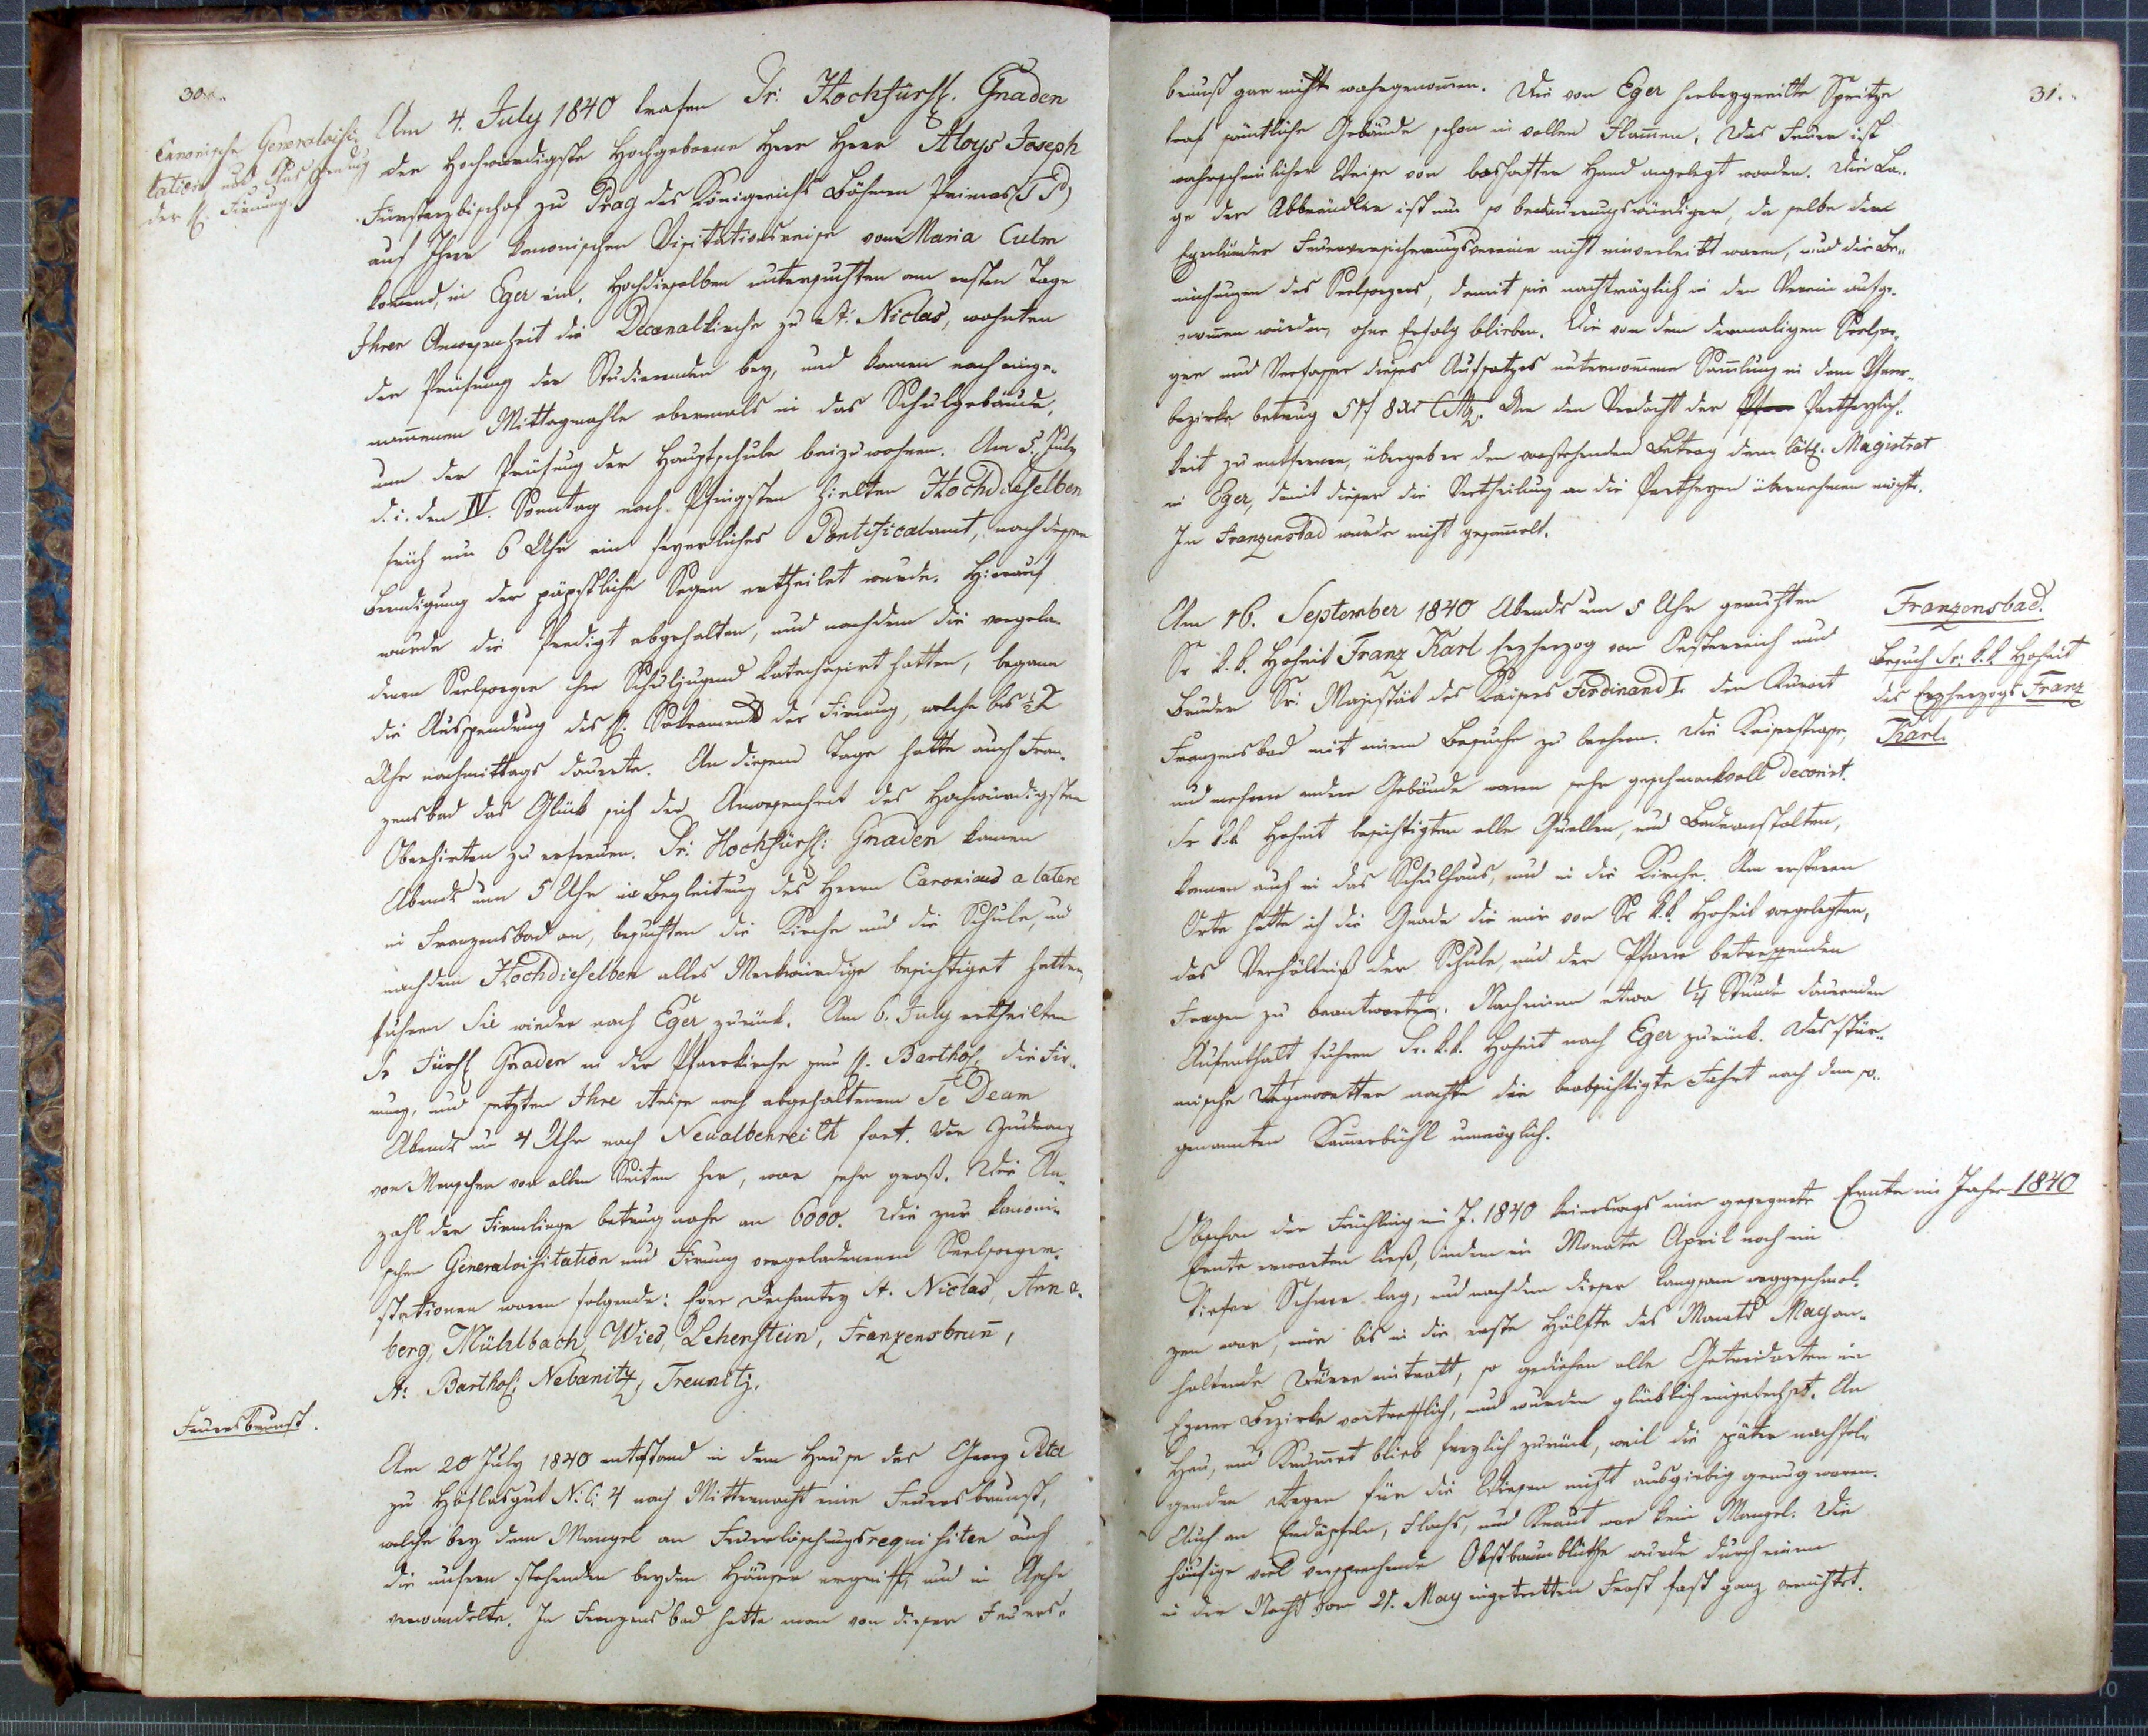 30.
Canonische Generalvisi-
tation und Ausspendung
der hl. Firmung.
Am 4. July 1840 trafen Sr: Hochfürstl. Gnaden
der Hochwürdigste Hochgeborne Herr Herr Aloys Joseph
Fürsterzbischof zu Prag des Königreichs Böhmen Primas (T P)
auf Ihrer kanonischen Visitationsreise von Maria Culm
kommend, in Eger ein. Hochdieselben untersuchten am ersten Tage
Ihrer Anwesenheit die Decanalkirche zu St: Niclas, wohnten
der Prüfung der Studierenden bey, und kamen nach einge-
nommenen Mittagmahle abermals in das Schulgebäude,
um der Prüfung der Hauptschule beizuwohnen. Am 5. July
d. i. den IV. Sonntag nach Pfingsten hielten Hochdieselben
früh um 6 Uhr ein feyerliches Pontificalamt, nach dessen
Beendigung der päpstliche Segen ertheilet wurde. Hierauf
wurde die Predigt abgehalten, und nachdem die vorgela-
denen Seelsorger ihre Schuljugend katechesirt hatten, begann
die Ausspendung des hl. Sakraments der Firmung, welche bis ½2
Uhr nachmittags dauerte. An diesem Tage hatte auch Fran-
zensbad das Glück sich der Anwesenheit des Hochwürdigsten
Oberhirten zu erfreuen. Sr: Hochfürstl: Gnaden kamen
Abends um 5 Uhr in Begleitung des Herrn Canonicus a latere
in Franzensbad an, besuchten die Kirche und die Schule, und
nachdem Hochdieselben alles Merkwürdige besichtiget hatten,
fuhren Sie wieder nach Eger zurück. Am 6. July ertheilten
Sr Fürstl Gnaden in der Pfarrkirche zum hl. Barthol. die Fir-
mung, und setzten Ihre Reise nach abgehaltenem Te Deum
Abends um 4 Uhr nach Neualbenreith fort. Der Zudrang
von Menschen von allen Seiten her, war sehr groß. Die An-
zahl der Firmlinge betrug nahe an 6000. Die zur kanoni-
schen Generalvisitation und Firmung vorgeladenenen Seelsorgs-
stationen waren folgende: Eger Dechantey St. Niclas, Anna-
berg, Mühlbach, Wies, Lehenstein, Franzensbrunn,
St: Barthol: Nebanitz, Treunitz.
Feuersbrunst.
Am 20 July 1840 entstand in dem Hause des Georg Peter
zu Höflasgut N: C: 4 nach Mitternacht eine Feuersbrunst,
welche bey dem Mangel an Feuerlöschungsrequisiten auch
die unfern stehenden beyden Häuser ergriff, und in Asche
verwandelte. In Franzensbad hatte man von dieser Feuers-
31.
brunst gar nichts wahrgenommen. Die von Eger herbeygeeilte Spritze
traf sämtliche Gebäude schon in vollen Flammen. Das Feuer ist
wahrscheinlicher Weise von boshafter Hand angelegt worden. Die La-
ge der Abbrändler ist um so bedauerungswürdiger, da selbe dem
Egerländer Feuerversicherungsvereine nicht einverleibt waren, und die Be-
mühungen des Seelsorgers, damit sie nachträglich in den Verein aufge-
nommen würden, ohne Erfolg blieben. Die von dem dermaligen Seelsor-
ger und Verfasser dieses Aufsatzes unternommene Sammlung in dem Pfarr-
bezirke betrug 51 f 8 xr CMz. Um den Verdacht der Partheylich-
keit zu entfernen, übergab er den vorstehenden Betrag dem löbl. Magistrat
in Eger, damit dieser die Vertheilung an die Partheyen übernehmen möchte.
In Franzensbad wurde nicht gesammelt.
Franzensbad.
Besuch Sr: k.k Hoheit
des Erzherzogs Franz
Karl.
Am 16. September 1840 Abends um 5 Uhr geruhten
Sr k.k. Hoheit Franz Karl Erzherzog von Oesterreich und
Bruder Sr: Majestät des Kaisers Ferdinand I. den Kurort
Franzensbad mit einem Besuche zu beehren. Die Kaiserstrasse,
und mehrere andere Gebäude waren sehr geschmackvoll decorirt.
Sr k.k Hoheit besichtigten alle Quellen, und Badeanstalten,
kamen auch in das Schulhaus, und in die Kirche. Am ersteren
Orte hatte ich die Gnade die mir von Sr k.k. Hoheit vorgelegten,
das Verhältniß der Schule, und der Pfarre betreffenden
Fragen zu beantworten. Nach einem etwa ¼ Stunde daurenden
Aufenthalt fuhren Sr. k.k. Hoheit nach Eger zurück. Das stür-
mische Regenwetter machte die beabsichtigte Fahrt nach dem so-
genannten Kammerbühl unmöglich.
Ernte im Jahre 1840
Obschon der Frühling im J. 1840 keineswegs eine gesegnete
Ernte erwarten ließ, indem im Monate April noch ein
tiefer Schnee lag, und nachdem dieser langsam weggeschmol-
zen war, eine bis in die erste Hälfte des Monats May an-
haltende Dürre eintratt, so gediehen alle Getreidarten im
Egerer Bezirke vortrefflich, und wurden glücklich eingefechst. An
Heu, und Krummet blieb freylich zurück, weil die später nachfol-
genden Regen für die Wiesen nicht ausgiebig genug waren.
Auch an Erdäpfeln, Flachs, und Kraut war kein Mangel. Die
häufige viel versprechende Obstbaumblüthe wurde durch einen
in der Nacht vom 21. May eingetretten Frost fast ganz vernichtet.